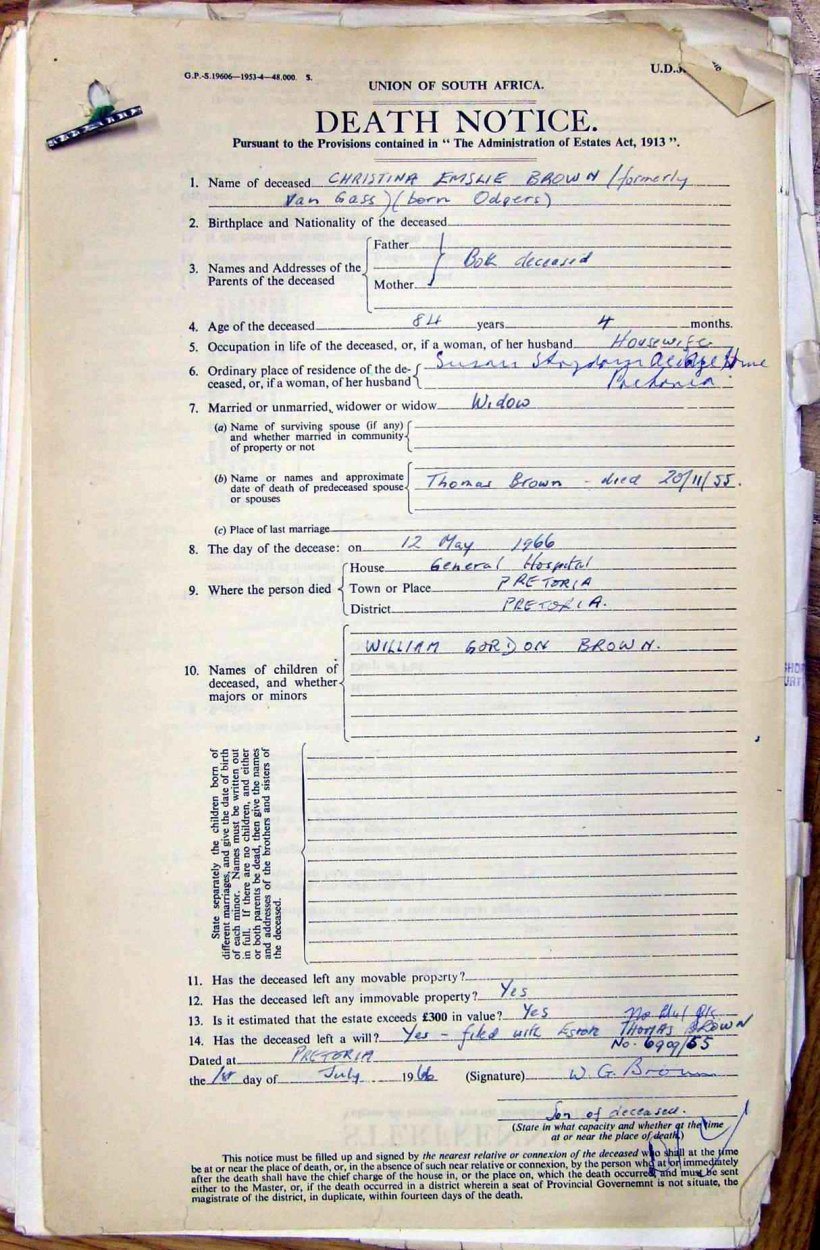 G.P.-S.19606—1953-4—48,000. S.
U.D.J.
UNION OF SOUTH AFRICA.
DEATH NOTICE.
Pursuant to the Provisions contained in “ The Administration of Estates Act, 1913 ”.
1. Name of deceased CHRISTINA EMSLIE BROWN (formerly
Van Gass) (born Odgers)
2. Birthplace and Nationality of the deceased
3. Names and Addresses of the Parents of the deceased
Father
Both deceased
Mother
4. Age of the deceased 84 years 4 months.
5. Occupation in life of the deceased, or, if a woman, of her husband Housewife
6. Ordinary place of residence of the de- Susan Strydom Old Age Home
ceased, or, if a woman, of her husband Pretoria
7. Married or unmarried, widower or widow Widow
(a) Name of surviving spouse (if any)
and whether married in community
of property or not
(b) Name or names and approximate
date of death of predeceased spouse Thomas Brown - died 20/11/55.
or spouses
(c) Place of last marriage
8. The day of the decease: on 12 May 1966
9. Where the person died
House General Hospital
Town or Place PRETORIA
District PRETORIA.
WILLIAM GORDON BROWN.
10. Names of children of
deceased, and whether
majors or minors
State separately the children born of
different marriages, and give the date of birth
of each minor. Names must be written out
in full. If there are no children, and either
or both parents be dead, then give the names
and addresses of the brothers and sisters of
the deceased.
11. Has the deceased left any movable property?
12. Has the deceased left any immovable property? Yes
13. Is it estimated that the estate exceeds £300 in value? Yes
14. Has the deceased left a will? Yes - filed with Estate THOMAS BROWN
No. 6909/55
Dated at PRETORIA
the 1st day of July 1966 (Signature) W. G. Brown
Son of deceased.
(State in what capacity and whether at the time
at or near the place of death)
This notice must be filled up and signed by the nearest relative or connexion of the deceased who shall at the time
be at or near the place of death, or, in the absence of such near relative or connexion, by the person who at or immediately
after the death shall have the chief charge of the house in, or the place on, which the death occurred and must be sent
either to the Master, or, if the death occurred in a district wherein a seat of Provincial Governemnt is not situate, the
magistrate of the district, in duplicate, within fourteen days of the death.